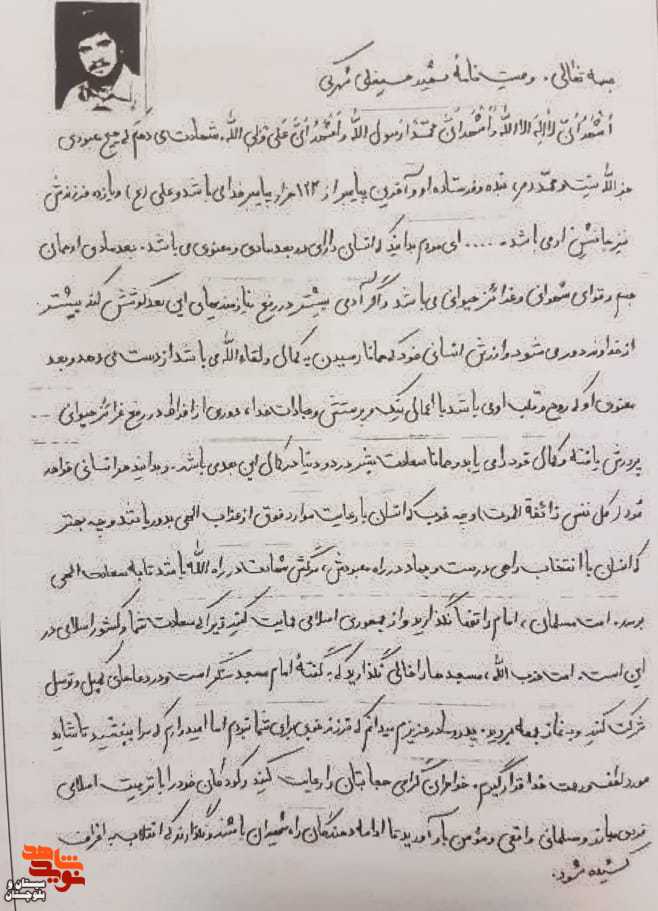 بسمه تعالی. وصیت نامه شهید حسینعلی شهرکی
أَشْهَدُ أَنْ لا إِلهَ إِلاَّ اللهُ وَ أَشْهَدُ أَنَّ مُحَمَّدًا رَسولُ اللهِ وَ أَشْهَدُ أَنَّ عَلی وَلی الله. شهادت می دهم که هیچ معبودی
جز الله نیست و محمد (ص) بنده و فرستاده او و آخرین پیامبر از ۱۲۴ هزار پیامبر خدا می باشد و علی (ع) و یازده فرزندش
نیز جانشین او می باشد. .... ای مردم بدانید که انسان دارای دو بعد مادی و معنوی می باشد. بعد مادی او همان
جسم و قوای شهوانی و غرائز حیوانی می باشد و اگر آدمی بیشتر در رفع نیازمندیهای این بعد کوشش کند بیشتر
از خداوند دور می شود و ارزش انسانی خود که همانا رسیدن به کمال و لقاءالله می باشد از دست می دهد و بعد
معنوی او که روح و قلب اوست می باشد با اعمال نیک و پرستش و عبادات خدا، دوری از افراط در رفع غرائز حیوانی
پرورش یافته و کمال خود را می یابد و همانا سعادت بشر در دو دنیا در کمال این بعد می باشد. و بدانید هر انسانی خواهد
مُرد (کل نفس ذائقة الموت) و چه خوب که انسان با رعایت موارد فوق از عذاب الهی بدور باشد و چه بهتر
که انسان با انتخاب راهی درست و جهاد در راه معبودش، مرگش شهادت در راه الله باشد تا به سعادت الهی
برسد. امت مسلمان، امام را تنها نگذارید و از جمهوری اسلامی حمایت کنید زیرا که سعادت شما و کشور اسلامی در
این است. امت حزب الله، مسجدها را خالی نگذارید که به گفتهٔ امام مسجد سنگر است و در دعاهای کمیل و توسل
شرکت کنید و به نماز جمعه بروید. پدر و مادر عزیزم میدانم که فرزند خوبی برای شما نبودم اما امیدوارم که مرا ببخشید تا شاید
مورد لطف و رحمت خدا قرار گیرم. خواهران گرامی حجابتان را رعایت کنید و کودکان خود را با تربیت اسلامی
فردی مبارز و مسلمانی واقعی و مؤمن بار آورید تا ادامه دهندگان راه شهیدان باشند و نگذارند که انقلاب به انحراف
کشیده شود.
نوید شاهد
سیستان و بلوچستان